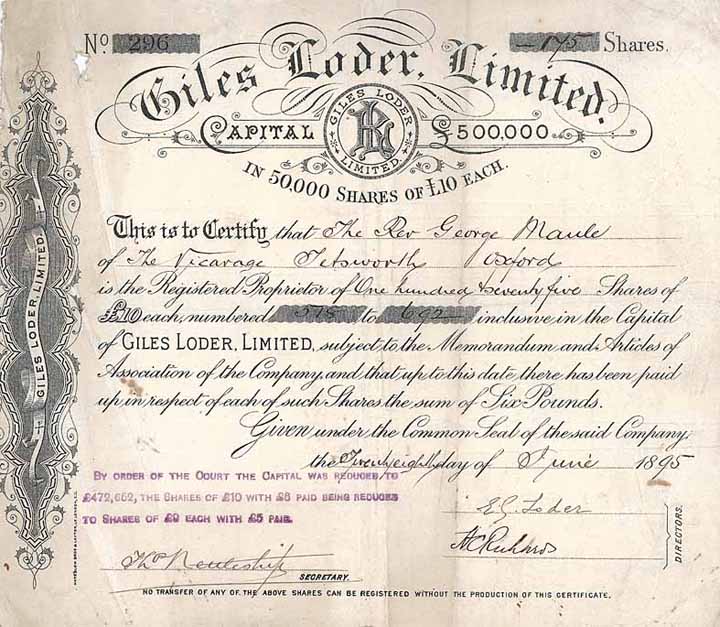 No 296 —175 Shares.
Giles Loder, Limited.
CAPITAL £500,000
GILES LODER LIMITED.
IN 50,000 SHARES OF £10 EACH.
This is to Certify that The Rev George Maule
of The Vicarage Tetsworth Oxford
is the Registered Proprietor of One hundred & seventy five Shares of
£10 each, numbered 518 to 692 inclusive in the Capital
of GILES LODER, LIMITED, subject to the Memorandum and Articles of
Association of the Company and that up to this date there has been paid
up in respect of each of such Shares the sum of Six Pounds.
Given under the Common Seal of the said Company,
the Twenty eighth day of June 1895
BY ORDER OF THE COURT THE CAPITAL WAS REDUCED TO
THE SHARES OF £10 WITH £6 PAID BEING REDUCED
TO SHARES OF £9 EACH WITH £5 PAID.
E G Loder
DIRECTORS.
SECRETARY.
NO TRANSFER OF ANY OF THE ABOVE SHARES CAN BE REGISTERED WITHOUT THE PRODUCTION OF THIS CERTIFICATE.
GILES LODER, LIMITED.
GILES LODER, LIMITED.